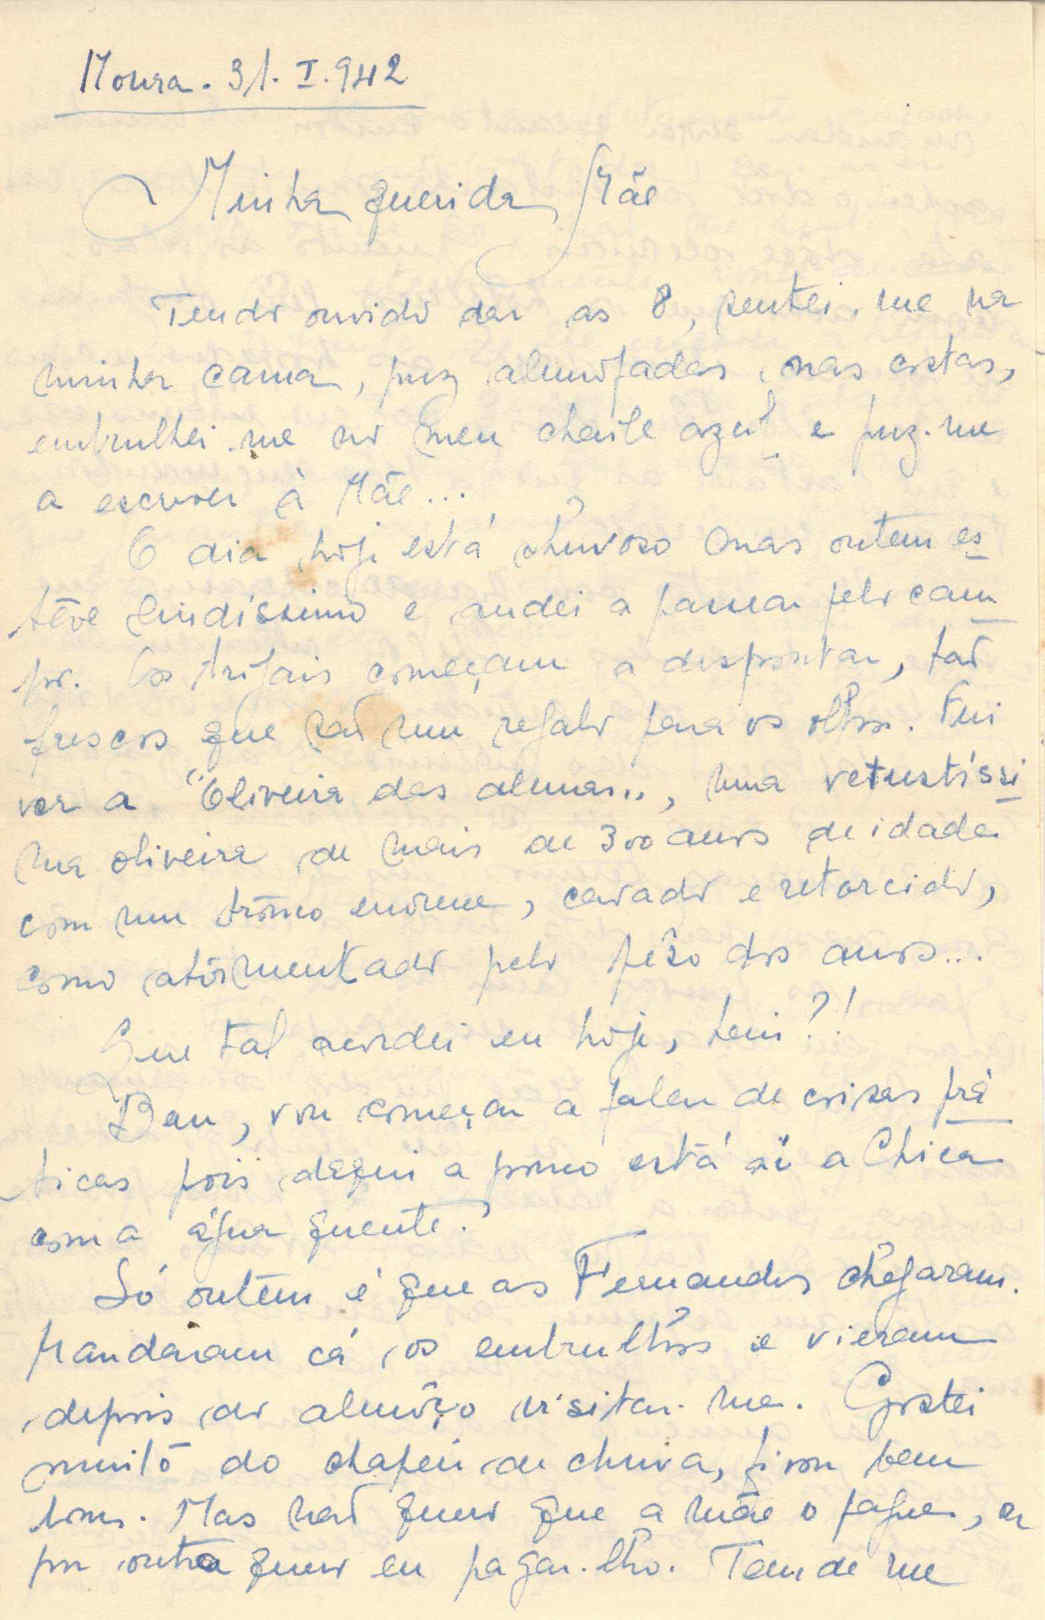 Moura. 31. I. 942
Minha querida Mãe
Tendo ouvido dar as 8, sentei-me na
minha cama, puz almofadas nas costas,
embrulhei-me no meu chaile azul e puz-me
a escrever à Mãe...
O dia hoje está chuvoso mas ontem es
têve lindíssimo e andei a passear pelo cam
po. Os trigais começam a despontar, tão
frescos que são um regalo para os olhos. Fui
ver a "Oliveira das almas", uma vetustíssi
ma oliveira de mais de 300 anos de idade
com um trônco enorme, cavado e retorcido,
como atormentado pelo pêso dos anos...
Que tal acordei eu hoje, hein?!
Bem, vou começar a falar de coisas prá
ticas pois daqui a pouco está aí a Chica
com a água quente.
Só ontem é que as Fernandes chegaram.
Mandaram cá os embrulhos e vieram
depois do almôço visitar-me. Gostei
muito do chapeu de chuva, ficou bem
bom. Mas não quero que a mãe o pague,
por outra quero eu pagar-lho. Tem de me